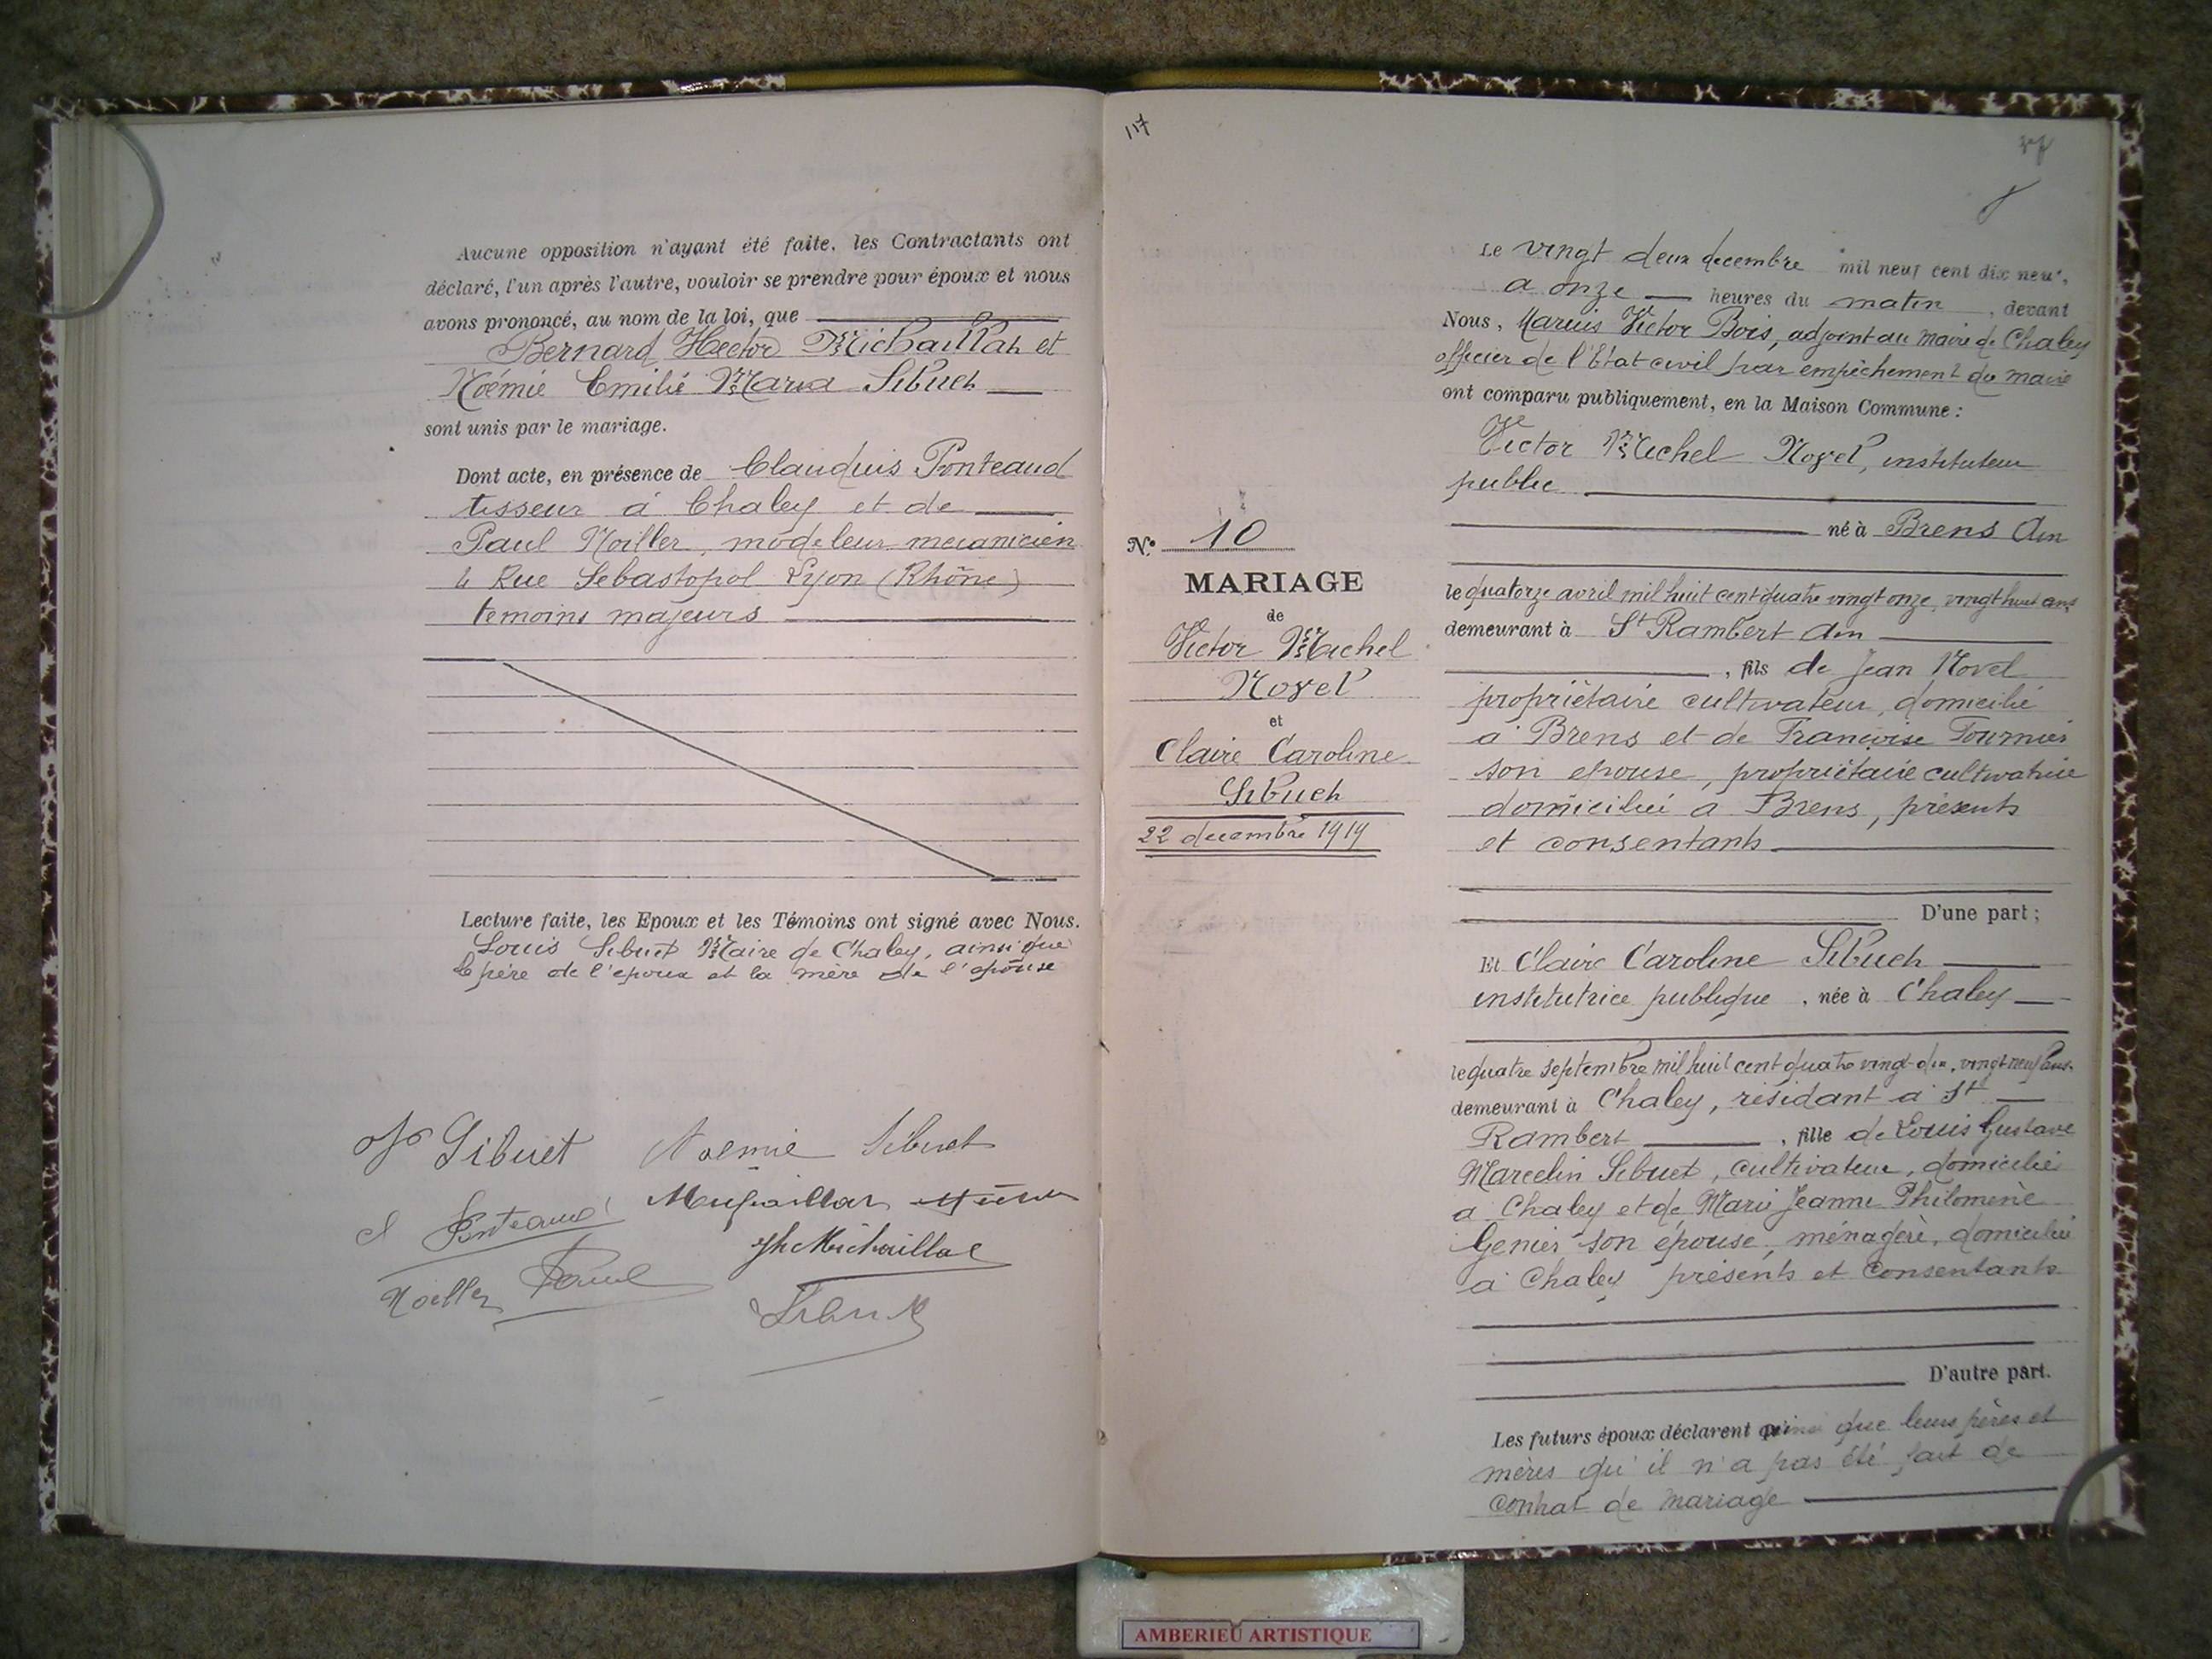 Aucune opposition n'ayant été faite, les Contractants ont
déclaré, l'un après l'autre, vouloir se prendre pour époux et nous
avons prononcé, au nom de la loi, que
Bernard Hector Michaillat et
Noémie Emilie Maria Sibuet
sont unis par le mariage.
Dont acte, en présence de Claudius Ponteaud
tisseur à Chaley et de
Paul Noiller, modeleur mecanicien
4 Rue Sebastopol Lyon (Rhône)
temoins majeurs
Lecture faite, les Epoux et les Témoins ont signé avec Nous.
Louis Sibuet Maire de Chaley, ainsi que
le père de l'epoux et la mère de l'epouse
Sibuet Noemie Sibuet
Ponteaud
Jh Michaillat
Noiller Paul
117
N.° 10
MARIAGE
de
Victor Michel
Novel
et
Claire Caroline
Sibuet
22 decembre 1919
Le vingt deux decembre mil neuf cent dix neuf,
a onze heures du matin, devant
Nous, Marius Victor Bois, adjoint au maire de Chaley
officier de l'Etat civil par empêchement du maire
ont comparu publiquement, en la Maison Commune :
Victor Michel Novel, instituteur
public
né à Brens Ain
le quatorze avril mil huit cent quatre vingt onze, vingt huit ans
demeurant à St Rambert Ain
, fils de Jean Novel
propriètaire cultivateur, domicilié
a Brens et de Françoise Fournier
son epouse, propriètaire cultivatrice
domiciliée a Brens, présents
et consentants
D'une part ;
Et Claire Caroline Sibuet
institutrice publique, née à Chaley
le quatre septembre mil huit cent quatre vingt-dix, vingt-neuf ans
demeurant à Chaley, résidant a St
Rambert, fille de Louis Gustave
Marcelin Sibuet, cultivateur, domicilié
a Chaley et de Marie Jeanne Philomène
Genier son épouse, ménagère, domiciliée
à Chaley présents et consentants
D'autre part.
Les futurs époux déclarent ainsi que leurs pères et
mères qu'il n'a pas été fait de
contrat de mariage
AMBERIEU ARTISTIQUE